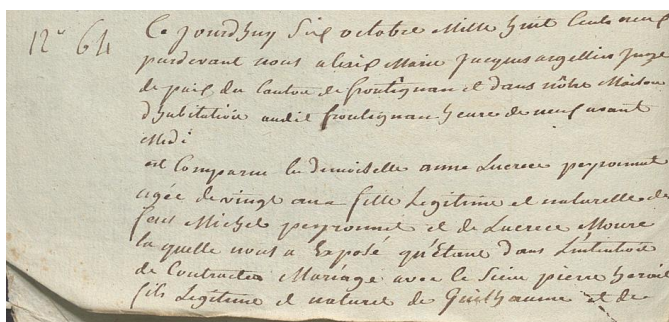 N.° 64
Ce jourdhuy six octobre mille huit cents neuf
pardevant nous alexis Marie Jacques argellies juge
de paix du Canton de frontignan et dans nôtre Maison
d'habitation audit frontignan heure de neuf avant
midi
est Comparue la demoiselle anne Lucrece peyronnet
agée de vingt ans fille Legitime et naturelle de
feus Michel peyronnet et de Lucrece Moure
la quelle nous a Exposé qu'Etant dans L'intention
de Contracter Mariage avec le Sieur pierre
fils Legitime et naturel de Guilhaume et de